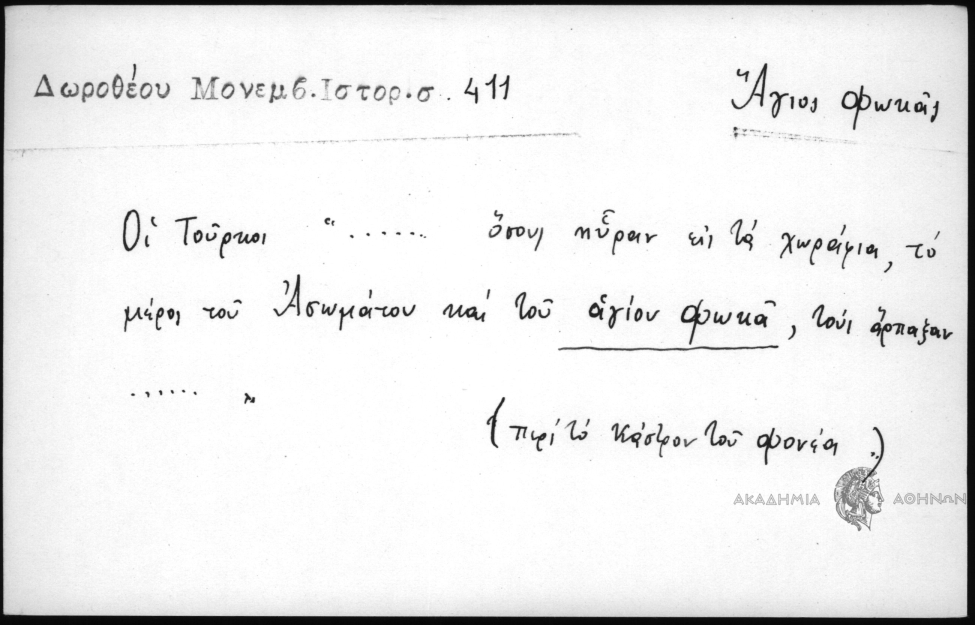 Δωροθέου Μονεμβ.Ιστορ.σ. 411
Ἅγιος Φωκᾶς
Οἱ Τοῦρκοι "....... ὅσους ηὗραν εἰς τά χωράφια, τό
μέρος τοῦ Ἀσωμάτου καί τοῦ ἁγίου Φωκᾶ, τούς ἅρπαξαν
...... "
(περί τό κάστρον τοῦ Φονέα ..)
ΑΚΑΔΗΜΙΑ ΑΘΗΝΩΝ